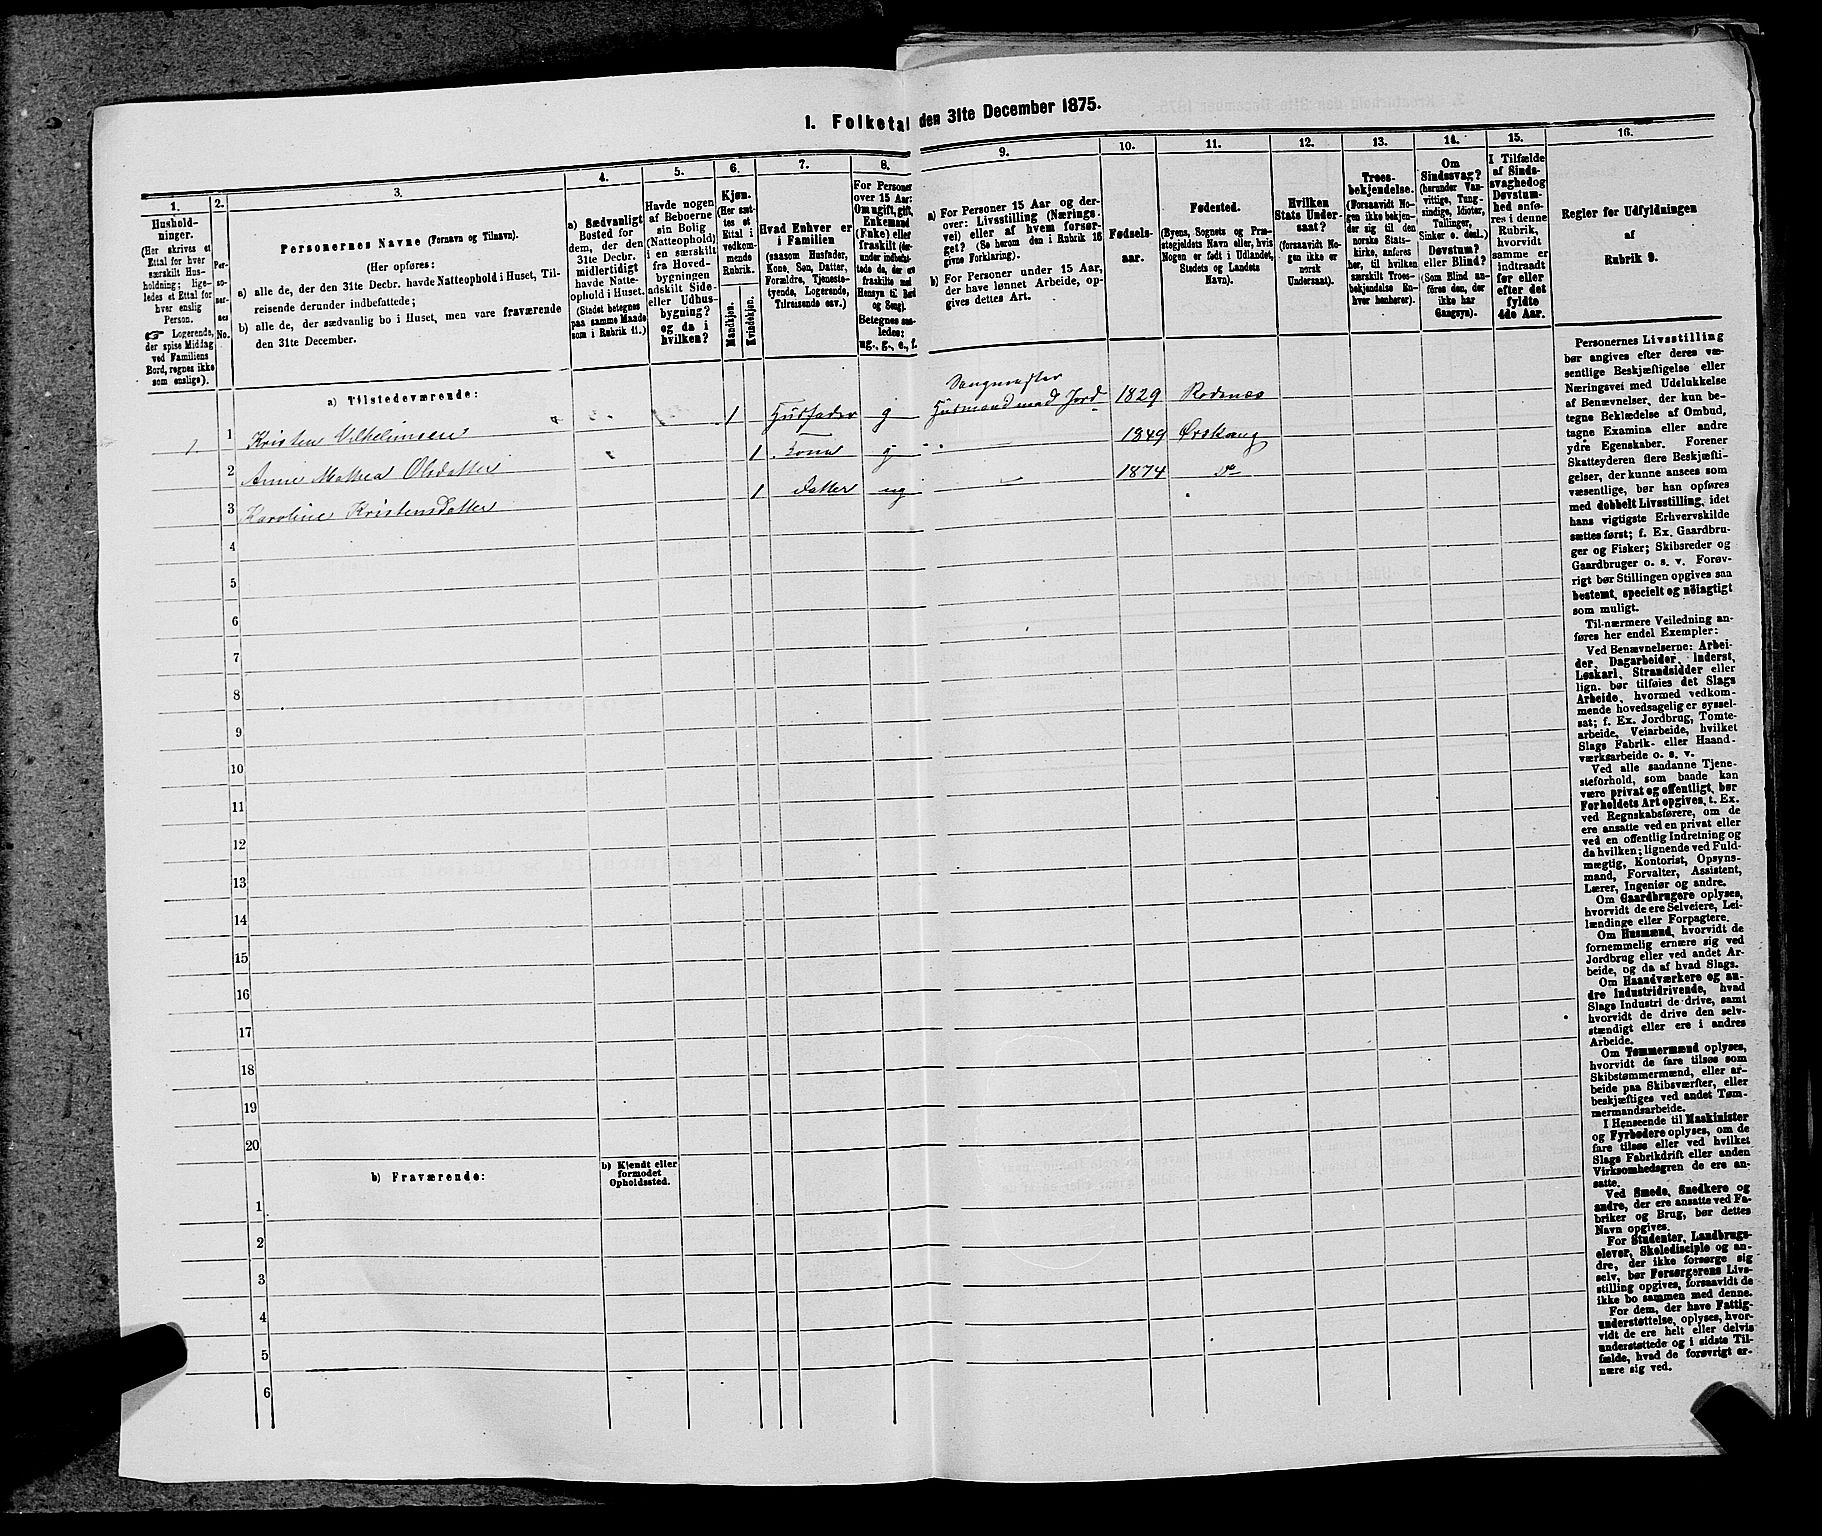 1. Folketal den 31te December 1875.
1.
Hushold-
ninger.
(Her skrives et
Ettal for hver
særskilt Hus-
holdning; lige-
ledes et Ettal for
hver enslig
Person.
☞ Logerende,
der spise Middag
ved Familiens
Bord, regnes ikke
som enslige).
2.
Per-
so-
ner-
nes
No.
3.
Personernes Navne (Fornavn og Tilnavn).
(Her opføres:
a) alle de, der den 31te Decbr. havde Natteophold i Huset, Til-
reisende derunder indbefattede;
b) alle de, der sædvanlig bo i Huset, men vare fraværende
den 31te December.
4.
a) Sædvanligt
Bosted for
dem, der den
31te Decbr.
midlertidigt
havde Natte-
ophold i Huset.
(Stedet betegnes
paa samme Maade
som i Rubrik 11.)
5.
Havde nogen
af Beboerne
sin Bolig
(Natteophold)
i en særskilt
fra Hoved-
bygningen
adskilt Side-
eller Udhus-
bygning?
og da i
hvilken?
6.
Kjøn.
(Her sæt-
tes et
Ettal i
vedkom-
mende
Rubrik.
Mandkjøn.
Kvindekjøn.
7.
Hvad Enhver er
i Familien
(saasom Husfader,
Kone, Søn, Datter,
Forældre, Tjeneste-
tyende, Logerende,
Tilreisende osv.)
8.
For Personer
over 15 Aar:
Om ugift, gift,
Enkemand
(Enke) eller
fraskilt (der-
under indbefat-
tede de, der ere
fraskilte med
Hensyn til Bord
og Seng).
Betegnes saa-
ledes:
ug., g., e., f.
9.
a) For Personer 15 Aar og der-
over: Livsstilling (Nærings-
vei) eller af hvem forsør-
get? (Se herom den i Rubrik 16
givne Forklaring).
b) For Personer under 15 Aar,
der have lønnet Arbeide, op-
gives dettes Art.
10.
Fødsels-
aar.
11.
Fødested.
(Byens, Sognets og Præ-
stegjeldets Navn eller, hvis
Nogen er født i Udlandet,
Stedets og Landets
Navn).
12.
Hvilken
Stats Under-
saat?
(forsaavidt No-
gen ikke er
norsk
Undersaat).
13.
Troes-
bekjendelse.
(Forsaavidt No-
gen ikke bekjen-
der sig til den
norske Stats-
kirke, anføres
her, til hvilken
særskilt Troes-
bekjendelse En-
hver henhører).
14.
Om
Sindssvag?
(herunder Van-
vittige, Tung-
sindige, Idioter,
Tullinger,
Sinker o. desl.)
Døvstum?
eller Blind?
(Som Blind an-
føres den, der
ikke har
Gangsyn).
15.
I Tilfælde
af Sinds-
svaghed og
Døvstum-
hed anfø-
res i denne
Rubrik,
hvorvidt
samme er
indtraadt
før eller
efter det
fyldte
4de Aar.
16.
Regler for Udfyldningen
af
Rubrik 9.
a) Tilstedeværende:
1 1 Kristen Vilhelmsen 1 Husfader g Husmand med Jord 1829 Rødenæs
2 Anne Mathea Olsdatter 1 Kone g 1849 Ørskoug
3 Karoline Kristensdatter 1 Datter ug 1874 do
4
5
6
7
8
9
10
11
12
13
14
15
16
17
18
19
20
b) Fraværende:
b) Kjendt eller
formodet
Opholdssted.
1
2
3
4
5
6
Personernes Livsstilling
bør angives efter deres væ-
sentlige Beskjæftigelse eller
Næringsvei med Udelukkelse
af Benævnelser, der kun be-
tegne Beklædelse af Ombud,
tagne Examina eller andre
ydre Egenskaber. Forener
Skatteyderen flere Beskjæfti-
gelser, der kunne ansees som
væsentlige, bør han opføres
med dobbelt Livsstilling, idet
hans vigtigste Erhvervskilde
sættes først; f. Ex. Gaardbru-
ger og Fisker; Skibsreder og
Gaardbruger o. s. v. Forøv-
rigt bør Stillingen opgives saa
bestemt, specielt og nøiagtigt
som muligt.
Til nærmere Veiledning an-
føres her endel Exempler:
Ved Benævnelserne: Arbei-
der, Dagarbeider, Inderst,
Løskarl, Strandsidder eller
lign. bør tilføies det Slags
Arbeide, hvormed vedkom-
mende hovedsagelig er syssel-
sat; f. Ex. Jordbrug, Tomte-
arbeide, Veiarbeide, hvilket
Slags Fabrik- eller Haand-
værksarbeide o. s. v.
Ved alle saadanne Tjene-
steforhold, som baade kan
være privat og offentligt, bør
Forholdets Art opgives, t. Ex.
ved Regnskabsførere, om de
ere ansatte ved en privat eller
ved en offentlig Indretning og
da hvilken; lignende ved Fuld-
mægtig, Kontorist, Opsyns-
mand, Forvalter, Assistent,
Lærer, Ingeniør og andre.
Om Gaardbrugere oplyses,
hvorvidt de ere Selveiere, Lei-
lændinge eller Forpagtere.
Om Husmænd, hvorvidt de
fornemmelig ernære sig ved
Jordbrug eller ved andet Ar-
beide, og da af hvad Slags.
Om Haandværkere og an-
dre Industridrivende, hvad
Slags Industri de drive, samt
hvorvidt de drive den selv-
stændigt eller ere i andres
Arbeide.
Om Tømmermænd oplyses,
hvorvidt de fare tilsøs som
Skibstømmermænd, eller ar-
beide paa Skibsværfter, eller
beskjæftiges ved andet Tøm-
mermandsarbeide.
I Henseende til Maskinister
og Fyrbødere oplyses, om de
fare tilsøs eller ved hvilket
Slags Fabrikdrift eller anden
Virksomhedsgren de ere an-
satte.
Ved Smede, Snedkere og
andre, der ere ansatte ved Fa-
briker og Brug, bør dettes
Navn opgives.
For Studenter, Landbrugs-
elever, Skoledisciple og an-
dre, der ikke forsørge sig
selv, bør Forsørgerens Livs-
stilling opgives, forsaavidt de
ikke bo sammen med denne.
For dem, der have Fattig-
understøttelse, oplyses, hvor-
vidt de ere helt eller delvis
understøttede og i sidste Til-
fælde, hvad de forøvrigt er-
nære sig ved.